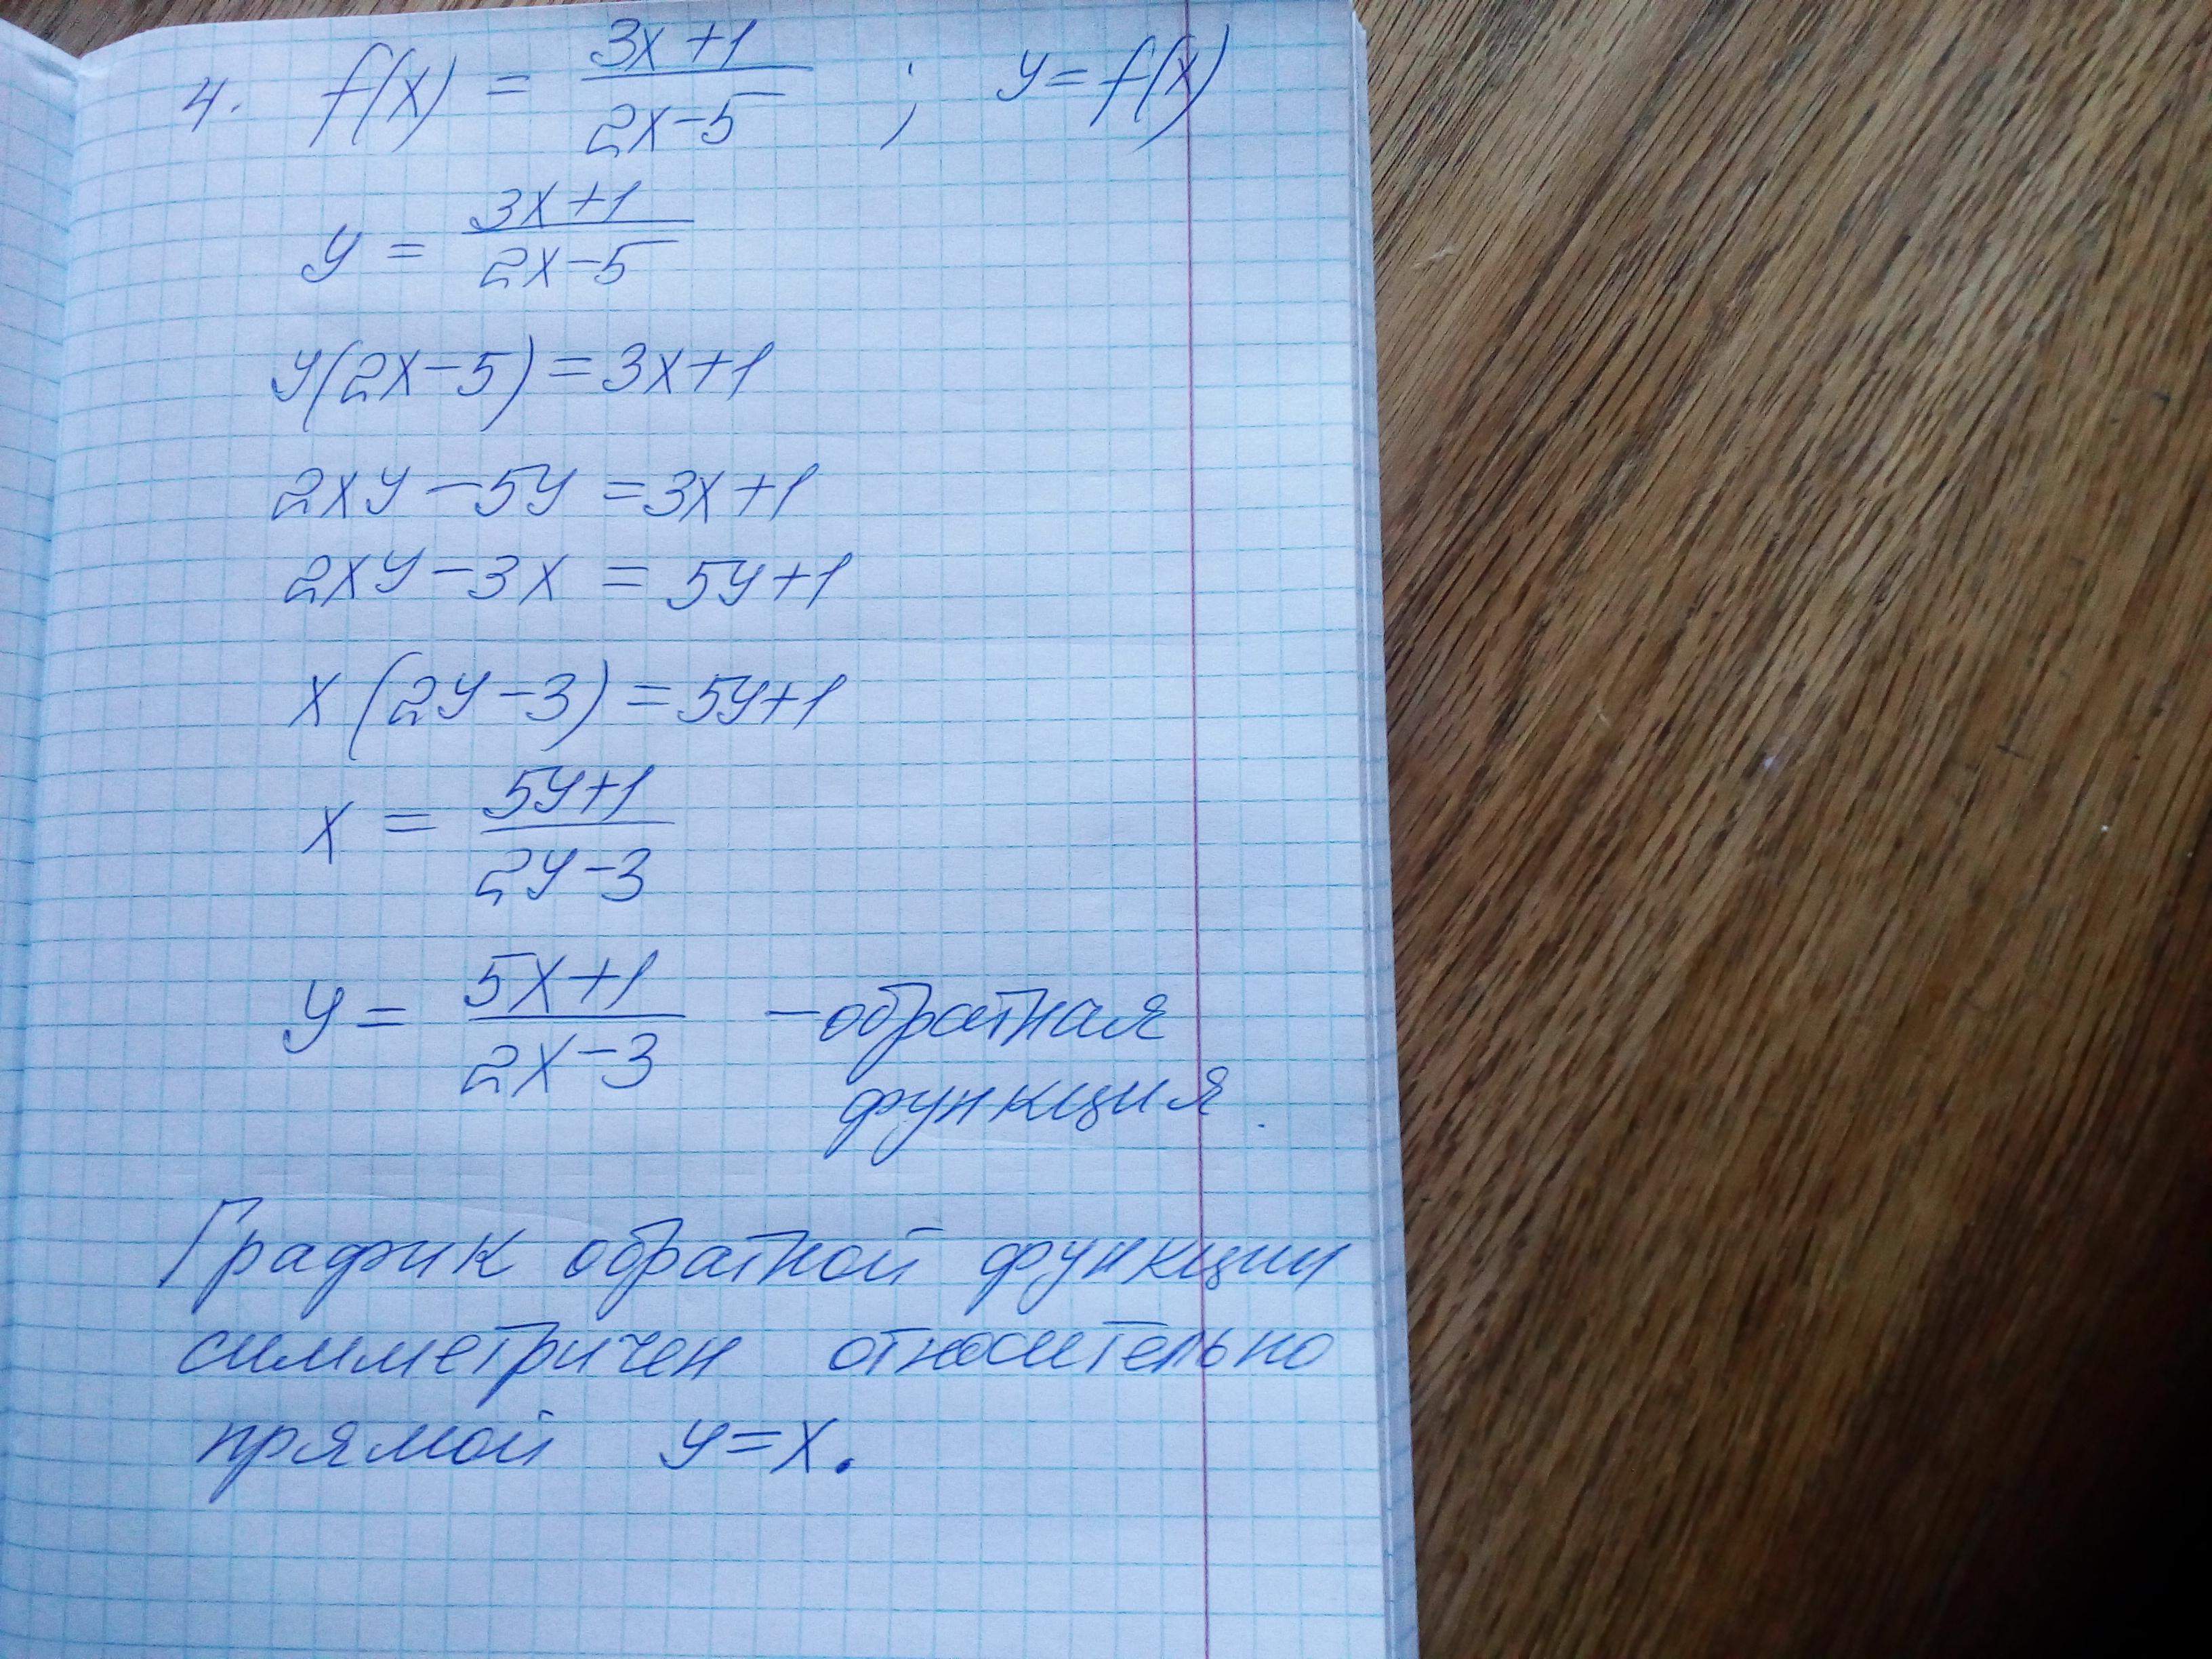 4. f(x) = (3x+1)/(2x-5) ; y = f(x)
y = (3x+1)/(2x-5)
y(2x-5) = 3x+1
2xy - 5y = 3x+1
2xy - 3x = 5y+1
x(2y-3) = 5y+1
x = (5y+1)/(2y-3)
y = (5x+1)/(2x-3) - обратная
функция.
График обратной функции
симметричен относительно
прямой y=x.